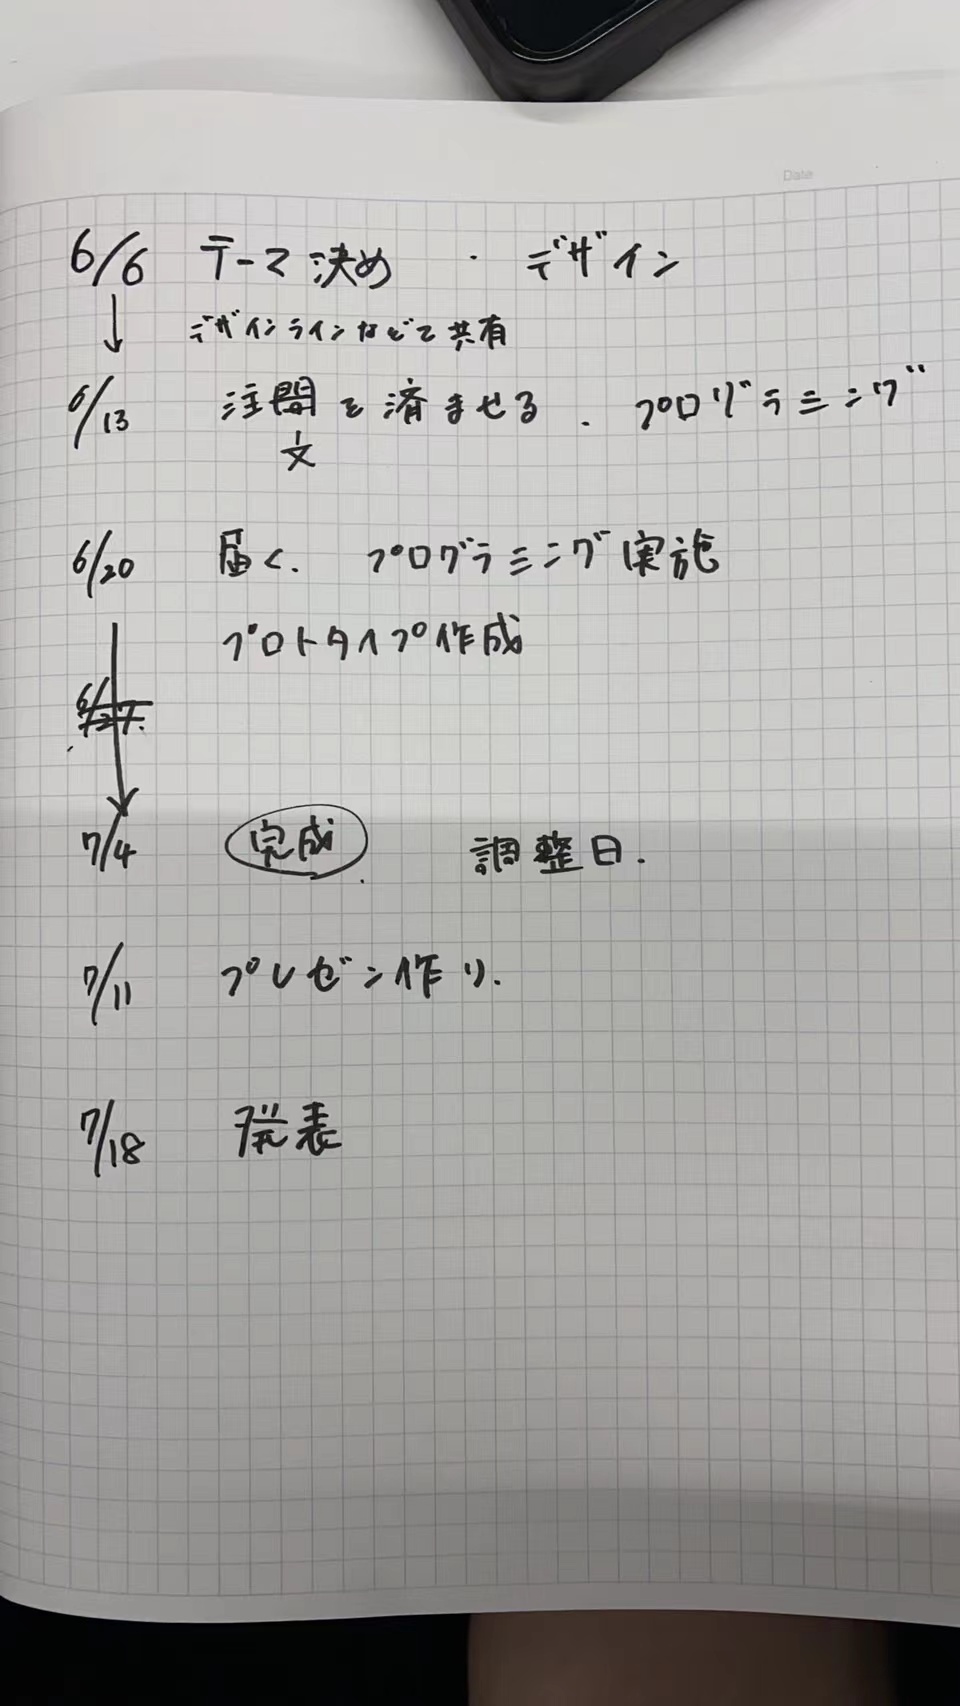 Date
6/6 テーマ決め ・ デザイン
↓ デザインラインなどで共有
6/13 注問を済ませる . プログラミング
文
6/20 届く. プログラミング実施
プロトタイプ作成
6/27.
7/4 完成. 調整日.
7/11 プレゼン作り.
7/18 発表